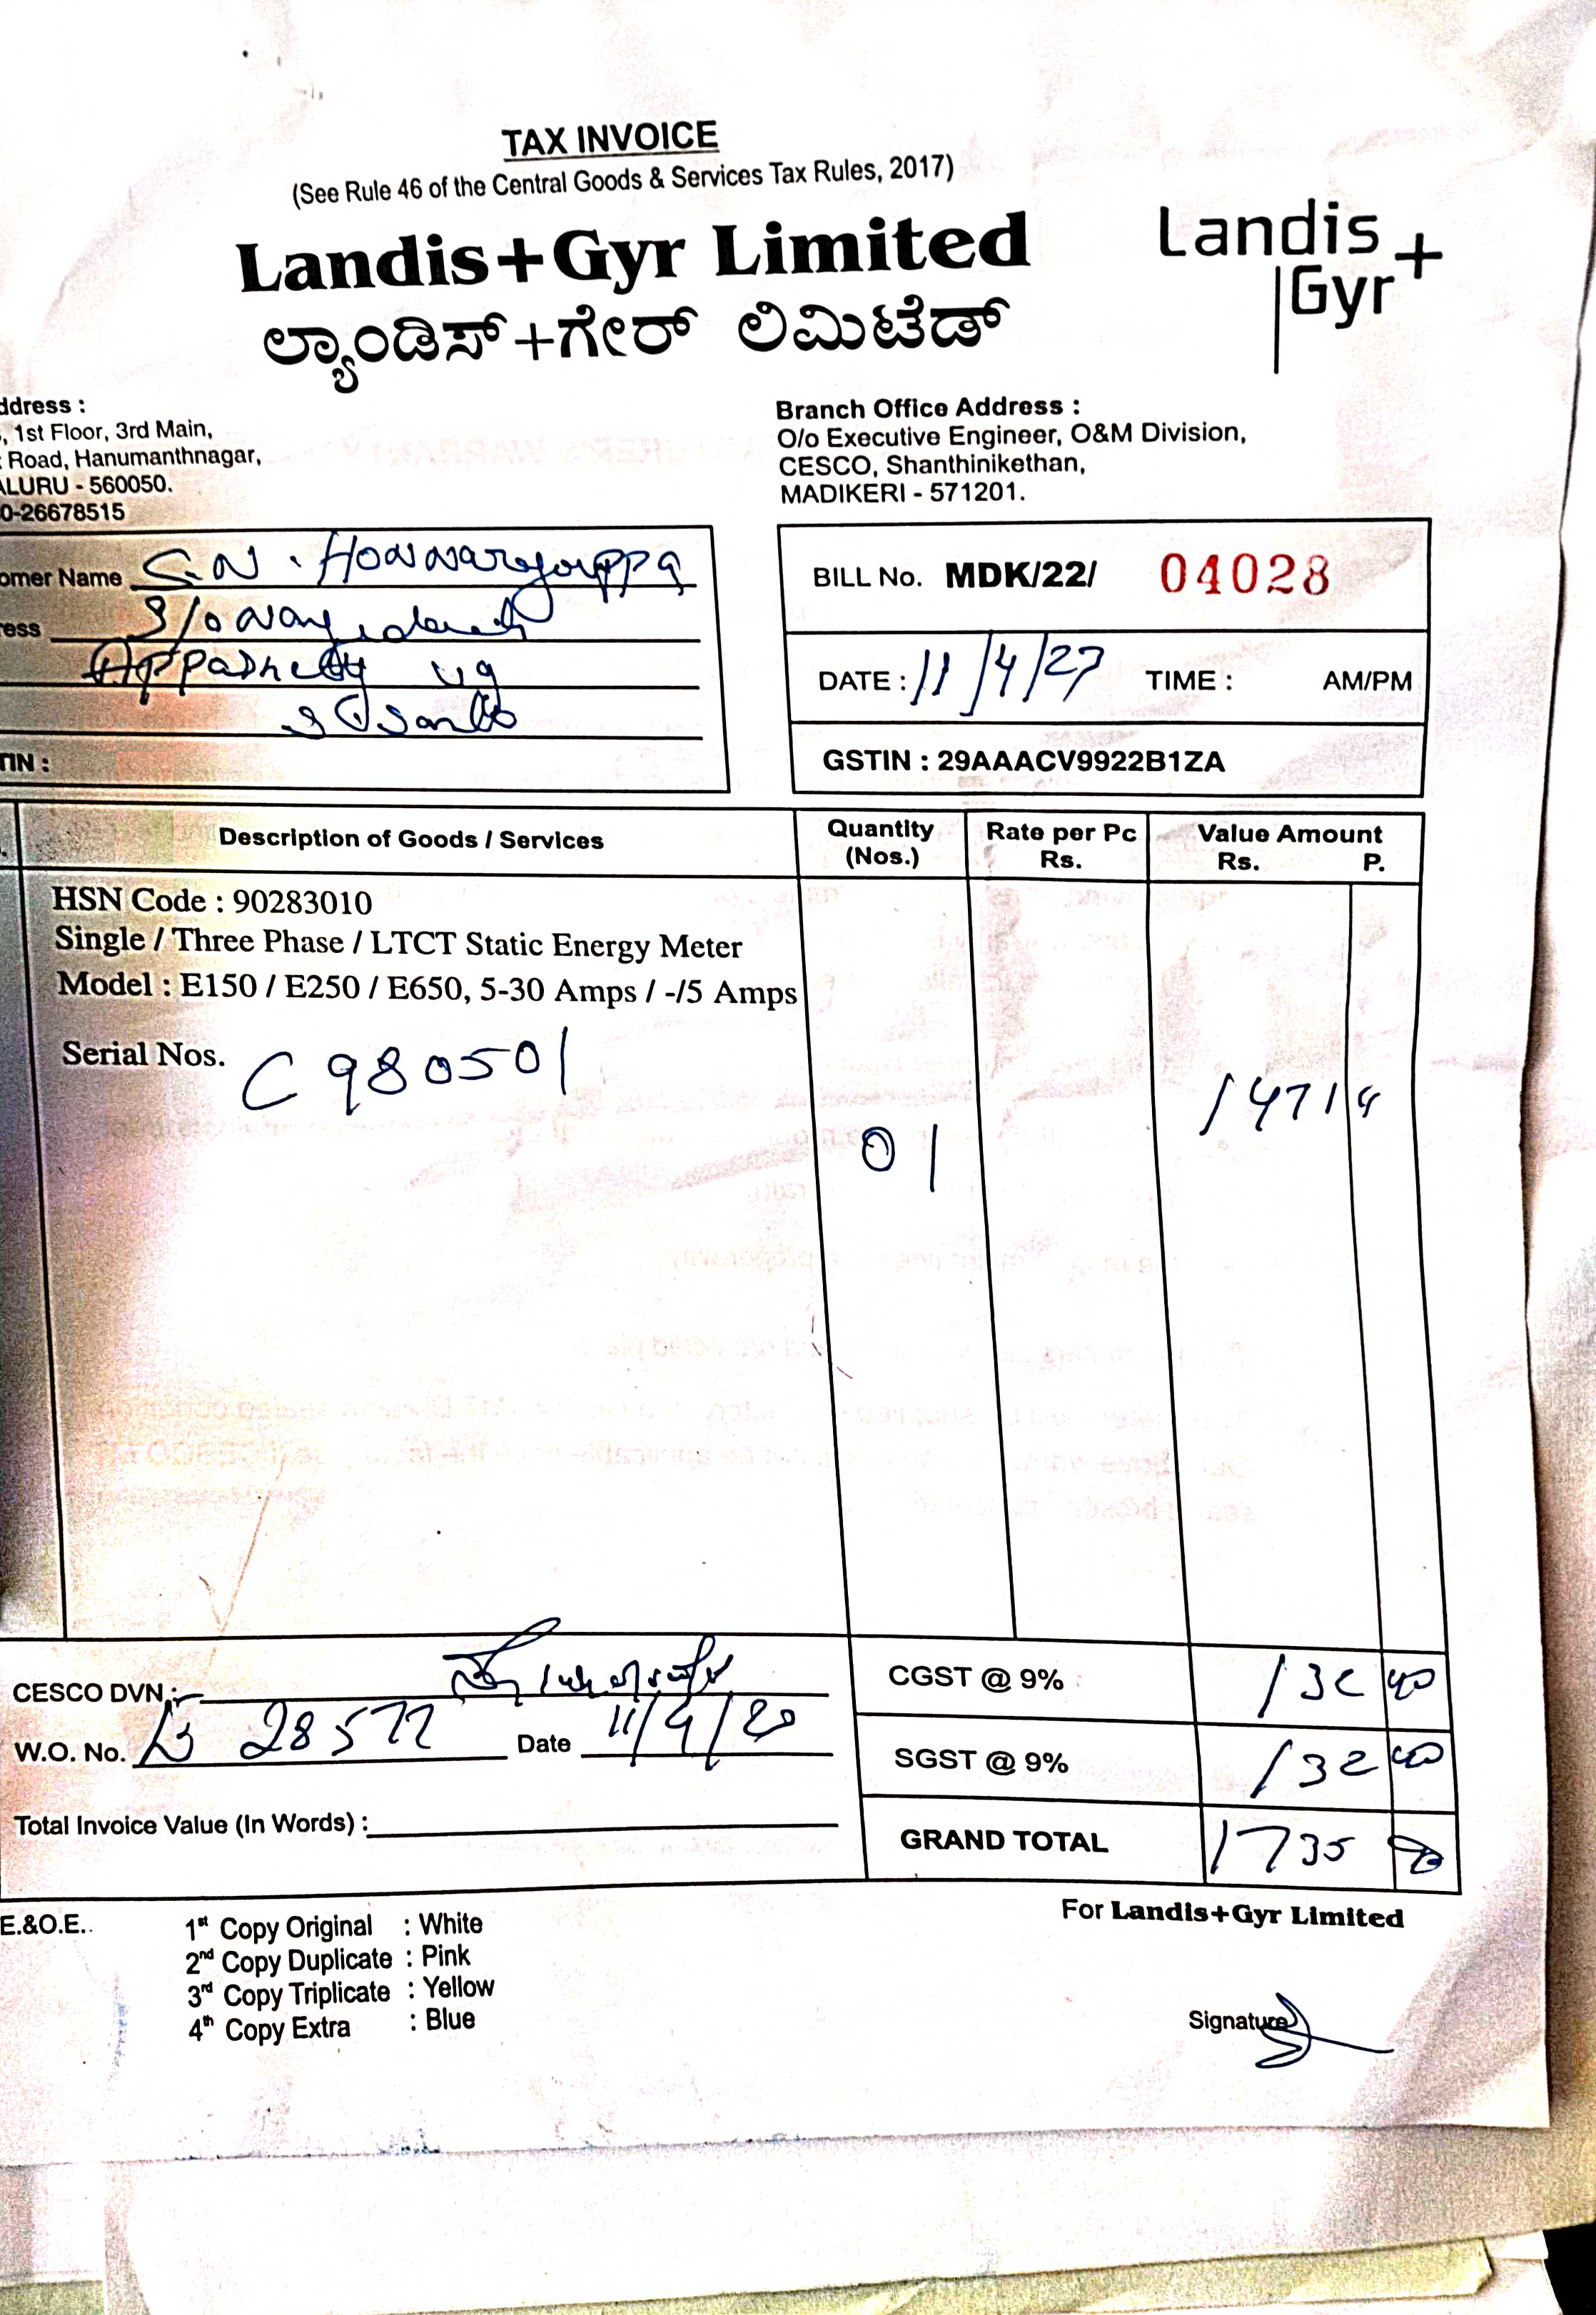 TAX INVOICE
(See Rule 46 of the Central Goods & Services Tax Rules, 2017)
Landis+Gyr Limited
ಲ್ಯಾಂಡಿಸ್+ಗೇರ್ ಲಿಮಿಟೆಡ್
Landis+
Gyr
ddress :
, 1st Floor, 3rd Main,
Road, Hanumanthnagar,
ALURU - 560050.
0-26678515
Branch Office Address :
O/o Executive Engineer, O&M Division,
CESCO, Shanthinikethan,
MADIKERI - 571201.
omer Name
ress S/o
TIN :
BILL No. MDK/22/ 04028
DATE : 11/4/27 TIME : AM/PM
GSTIN : 29AAACV9922B1ZA
Description of Goods / Services Quantity (Nos.) Rate per Pc Rs. Value Amount Rs. P.
HSN Code : 90283010
Single / Three Phase / LTCT Static Energy Meter
Model : E150 / E250 / E650, 5-30 Amps / -/5 Amps
Serial Nos. C980501
01 1471
CESCO DVN.:
W.O. No. 28577 Date 11/4/20
Total Invoice Value (In Words) :
CGST @ 9% 132 40
SGST @ 9% 132 40
GRAND TOTAL 1735
E.&O.E.
1st Copy Original : White
2nd Copy Duplicate : Pink
3rd Copy Triplicate : Yellow
4th Copy Extra : Blue
For Landis+Gyr Limited
Signature